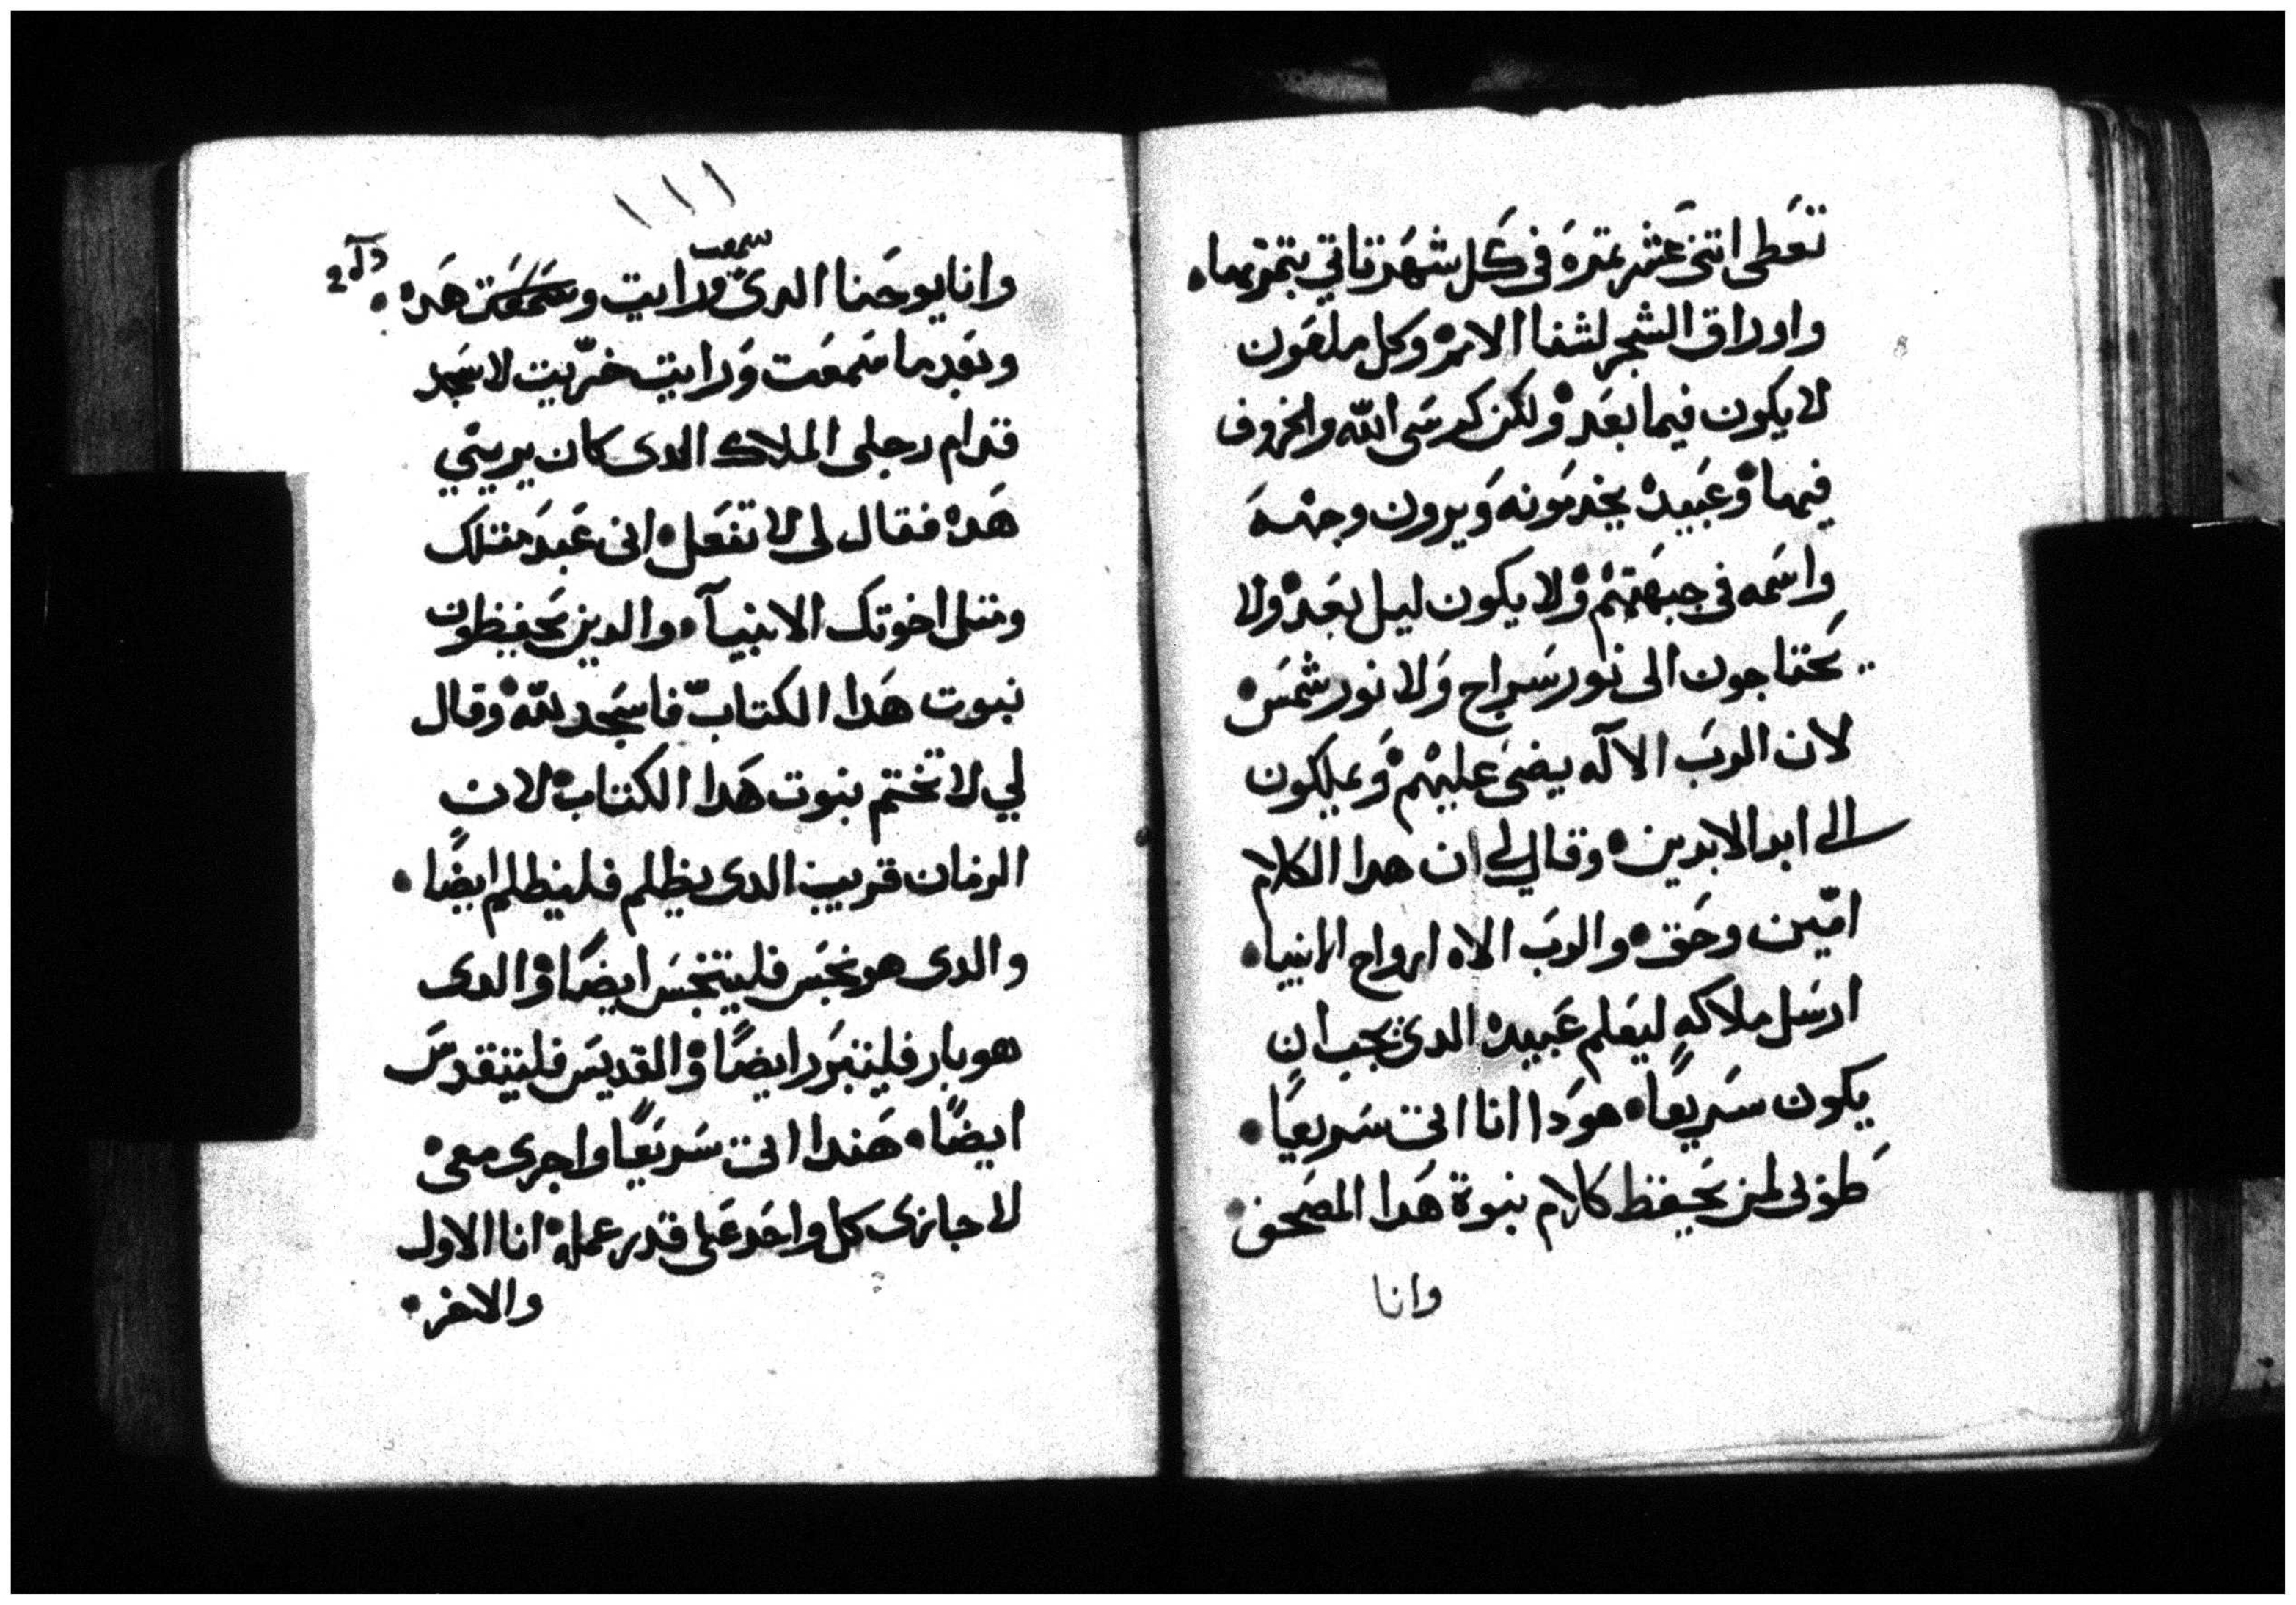 تعطى اتنى عشر تمرة فى كل شهر تاتي بتمرتها
واوراق الشجر لشفا الامم وكل ملعون
لا يكون فيما بعد ولكن كرسى الله والخروف
فيها وعبيده يخدمونه ويرون وجهه
واسمه فى جبهتهم ولا يكون ليل بعد ولا
يحتاجون الى نور سراج ولا نور شمس
لان الرب الاله يضى عليهم ويملكون
الى ابد الابدين وقال لى ان هدا الكلام
امين وحق والرب الاه ارواح الانبيا
ارسل ملاكه ليعلم عبيده الدى يجب ان
يكون سريعًا هودا انا اتى سريعًا
طوبى لمن يحفظ كلام نبوة هدا المصحف
وانا
١١١
وانا يوحنا الدى سمعت ورايت هده
وبعد ما سمعت ورايت خرّيت لاسجد
قدام رجلى الملاك الدى كان يريني
هده فقال لى لا تفعل انى عبد متلك
ومتل اخوتك الانبيآ والدين يحفظون
نبوت هدا الكتاب فاسجد لله وقال
لي لا تختم نبوت هدا الكتاب لان
الزمان قريب الدى يظلم فليظلم ايضًا
والدى هو نجس فليتنجس ايضًا والدى
هو بار فليتبرر ايضًا والقديس فليتقدس
ايضًا هندا اتى سريعًا واجرى معى
لاجازى كل واحد على قدر عمله انا الاول
والاخر